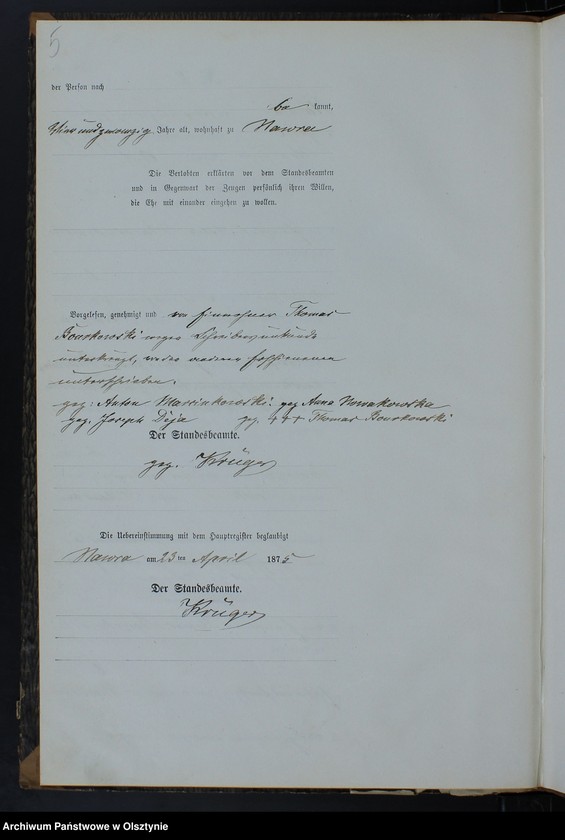 5
der Person nach
be kannt,
Jahre alt, wohnhaft zu Nawra
Die Verlobten erklärten vor dem Standesbeamten
und in Gegenwart der Zeugen persönlich ihren Willen,
die Ehe mit einander eingehen zu wollen.
Vorgelesen, genehmigt und von Einwohner Thomas
wegen Schreibensunkunde
unterkreuzt, von den anderen Erschienenen
unterschrieben.
gez: Anton Marcinkowski. gez Anna Nowakowska
gez. Joseph Deja gez. +++ Thomas
Der Standesbeamte.
gez. Krüger
Die Uebereinstimmung mit dem Hauptregister beglaubigt
Nawra am 23 ten April 1875
Der Standesbeamte.
Krüger
Archiwum Państwowe w Olsztynie